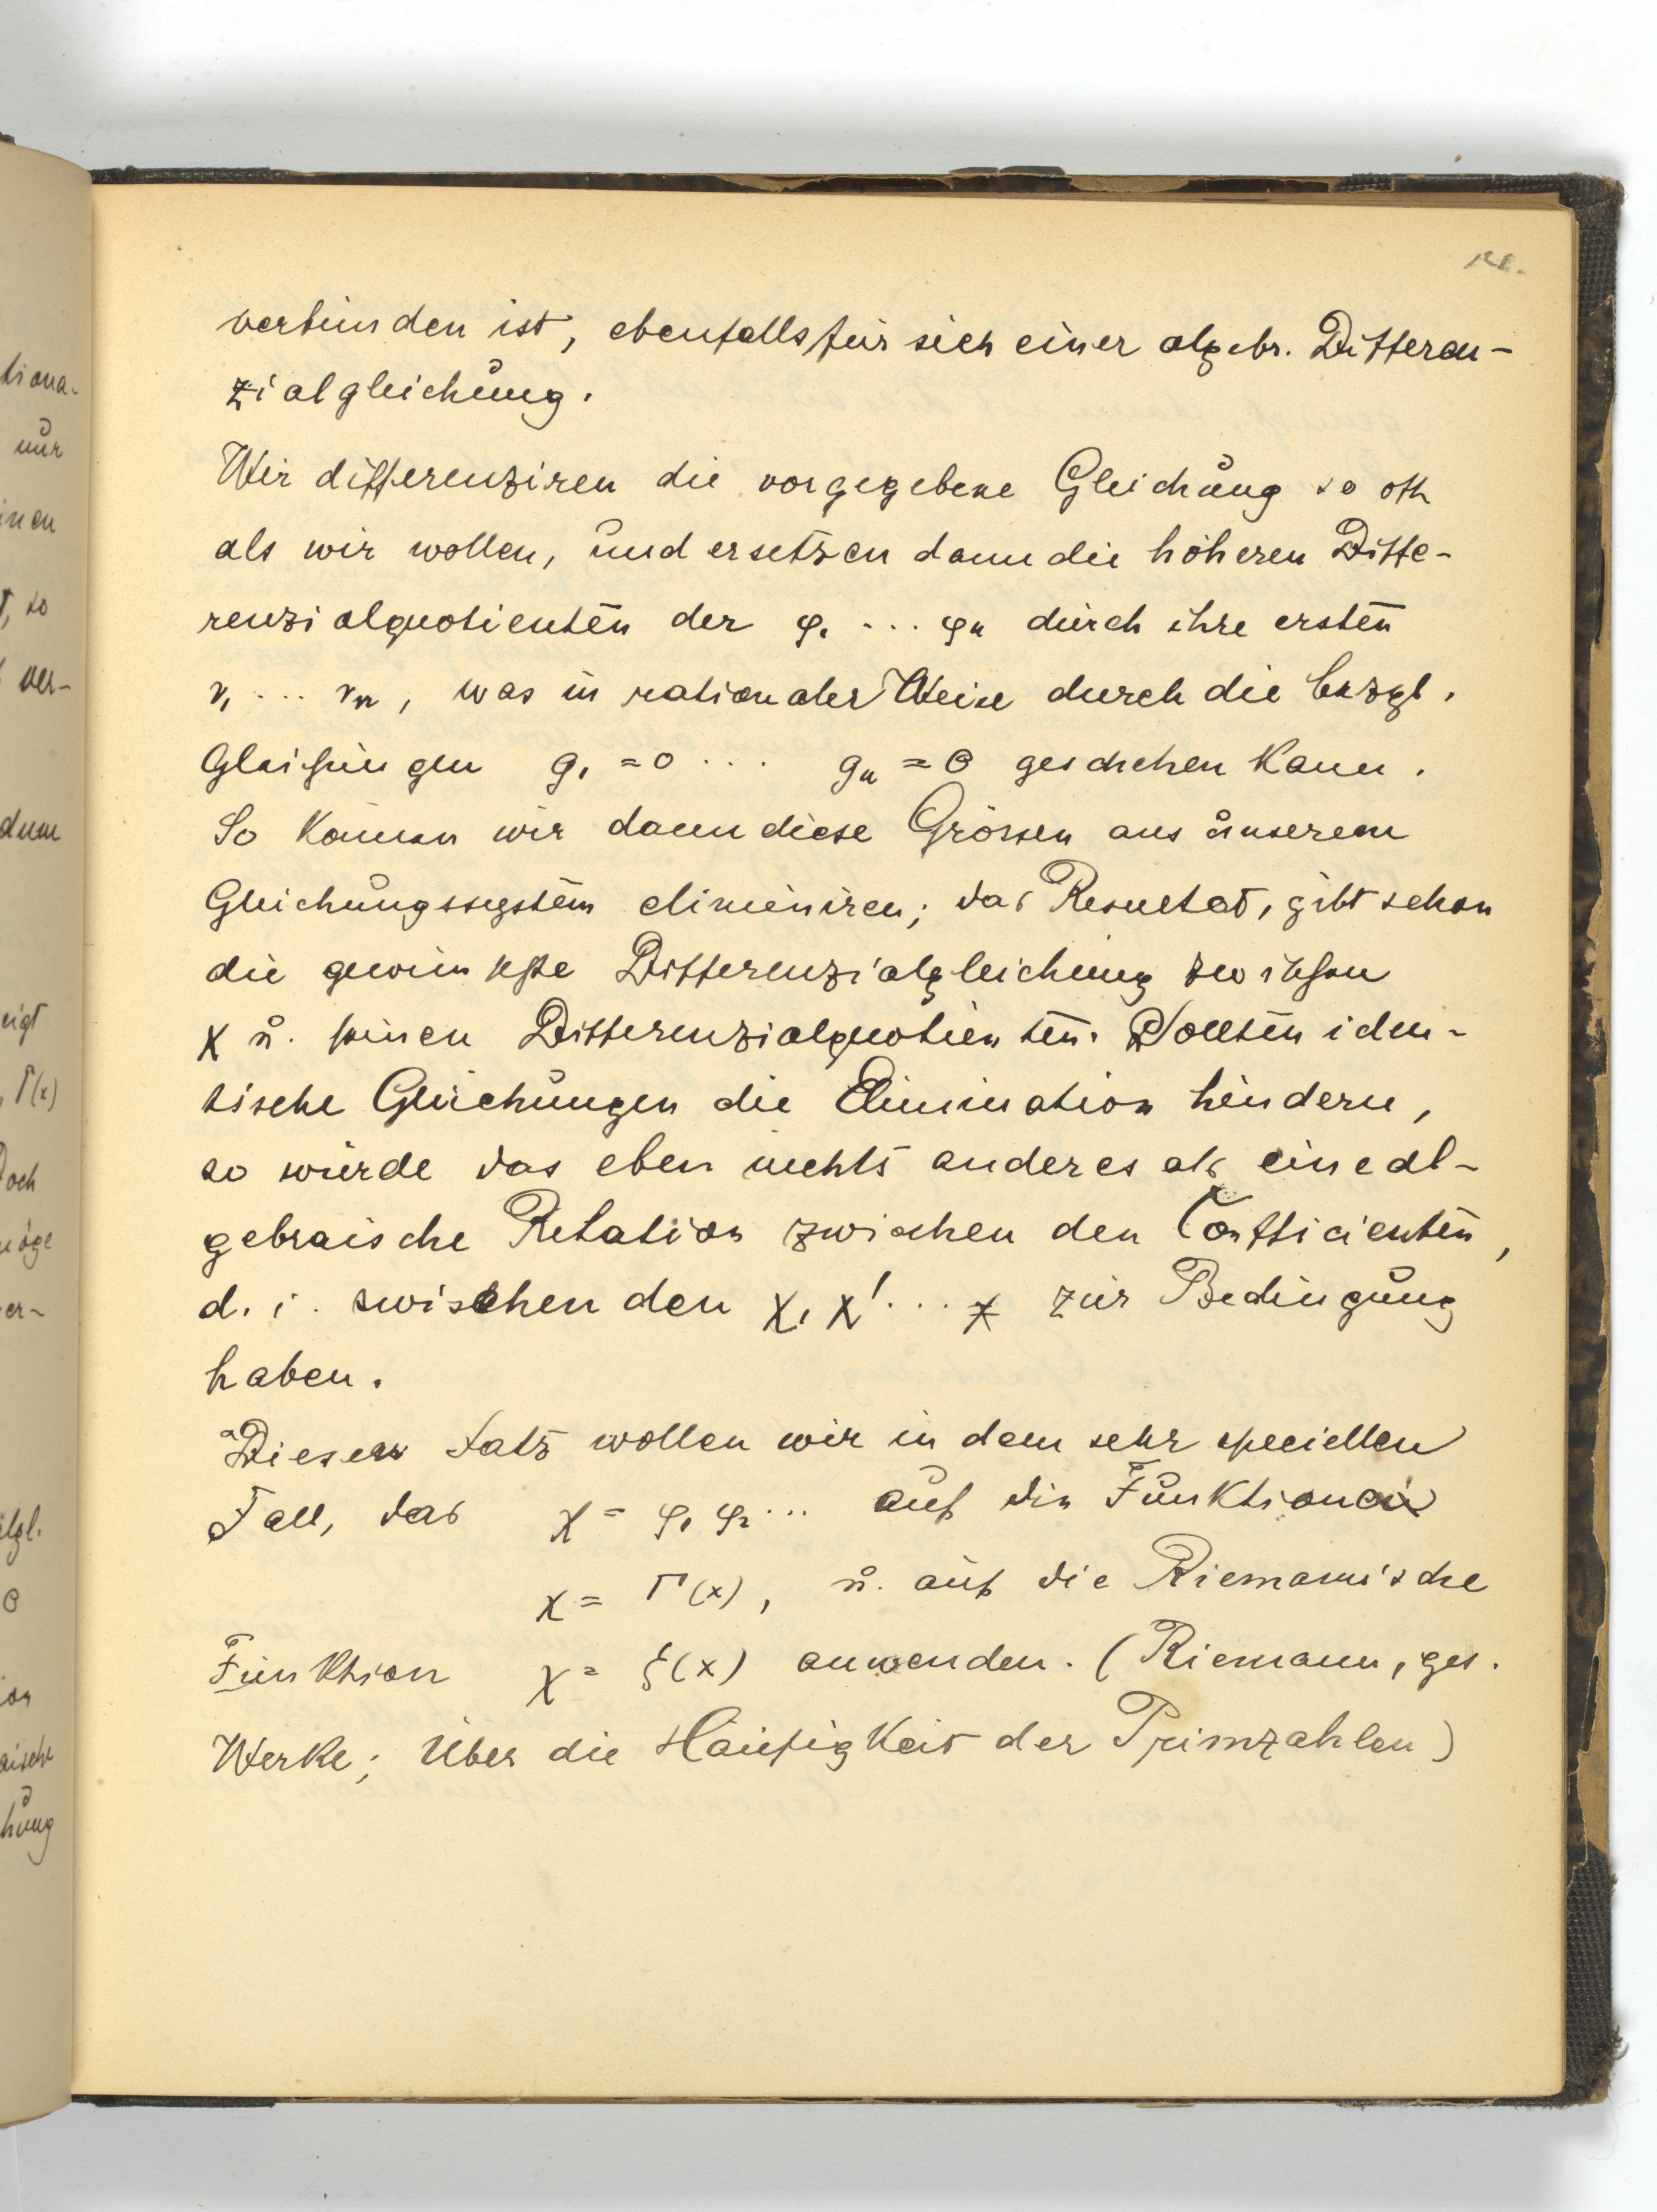 verbunden ist, ebenfalls für sich einer algebr. Differen-
zialgleichung.
Wir differenziren die vorgegebene Gleichung so oft
als wir wollen, und ersetzen dann die höheren Diffe-
renzialquotienten der φ₁ ... φn durch ihre ersten
r₁ ... rn, was in rationaler Weise durch die bezgl.
Gleichungen g₁ = 0 ... gn = 0 geschehen kann.
So können wir dann diese Grössen aus unserem
Gleichungssystem eliminiren; das Resultat, gibt schon
die gewünschte Differenzialgleichung zwischen
χ u. seinen Differenzialquotienten. Sollten iden-
tische Gleichungen die Elimination hindern,
so würde das eben nichts anderes als eine al-
gebraische Relation zwischen den Coefficienten,
d. i. zwischen den χ, χ' ... χ zur Bedingung
haben.
Diesen Satz wollen wir in dem sehr speciellen
Fall, das χ = φ₁ φ₂ ... auf die Funktionen
χ = Γ(x), u. auf die Riemannische
Funktion χ = ξ(x) anwenden. (Riemann, ges.
Werke; Über die Häufigkeit der Primzahlen)
tiona-
nur
inen
so
ver-
dum
eigt
, Γ(x)
Doch
möge
er-
0
aische
hung